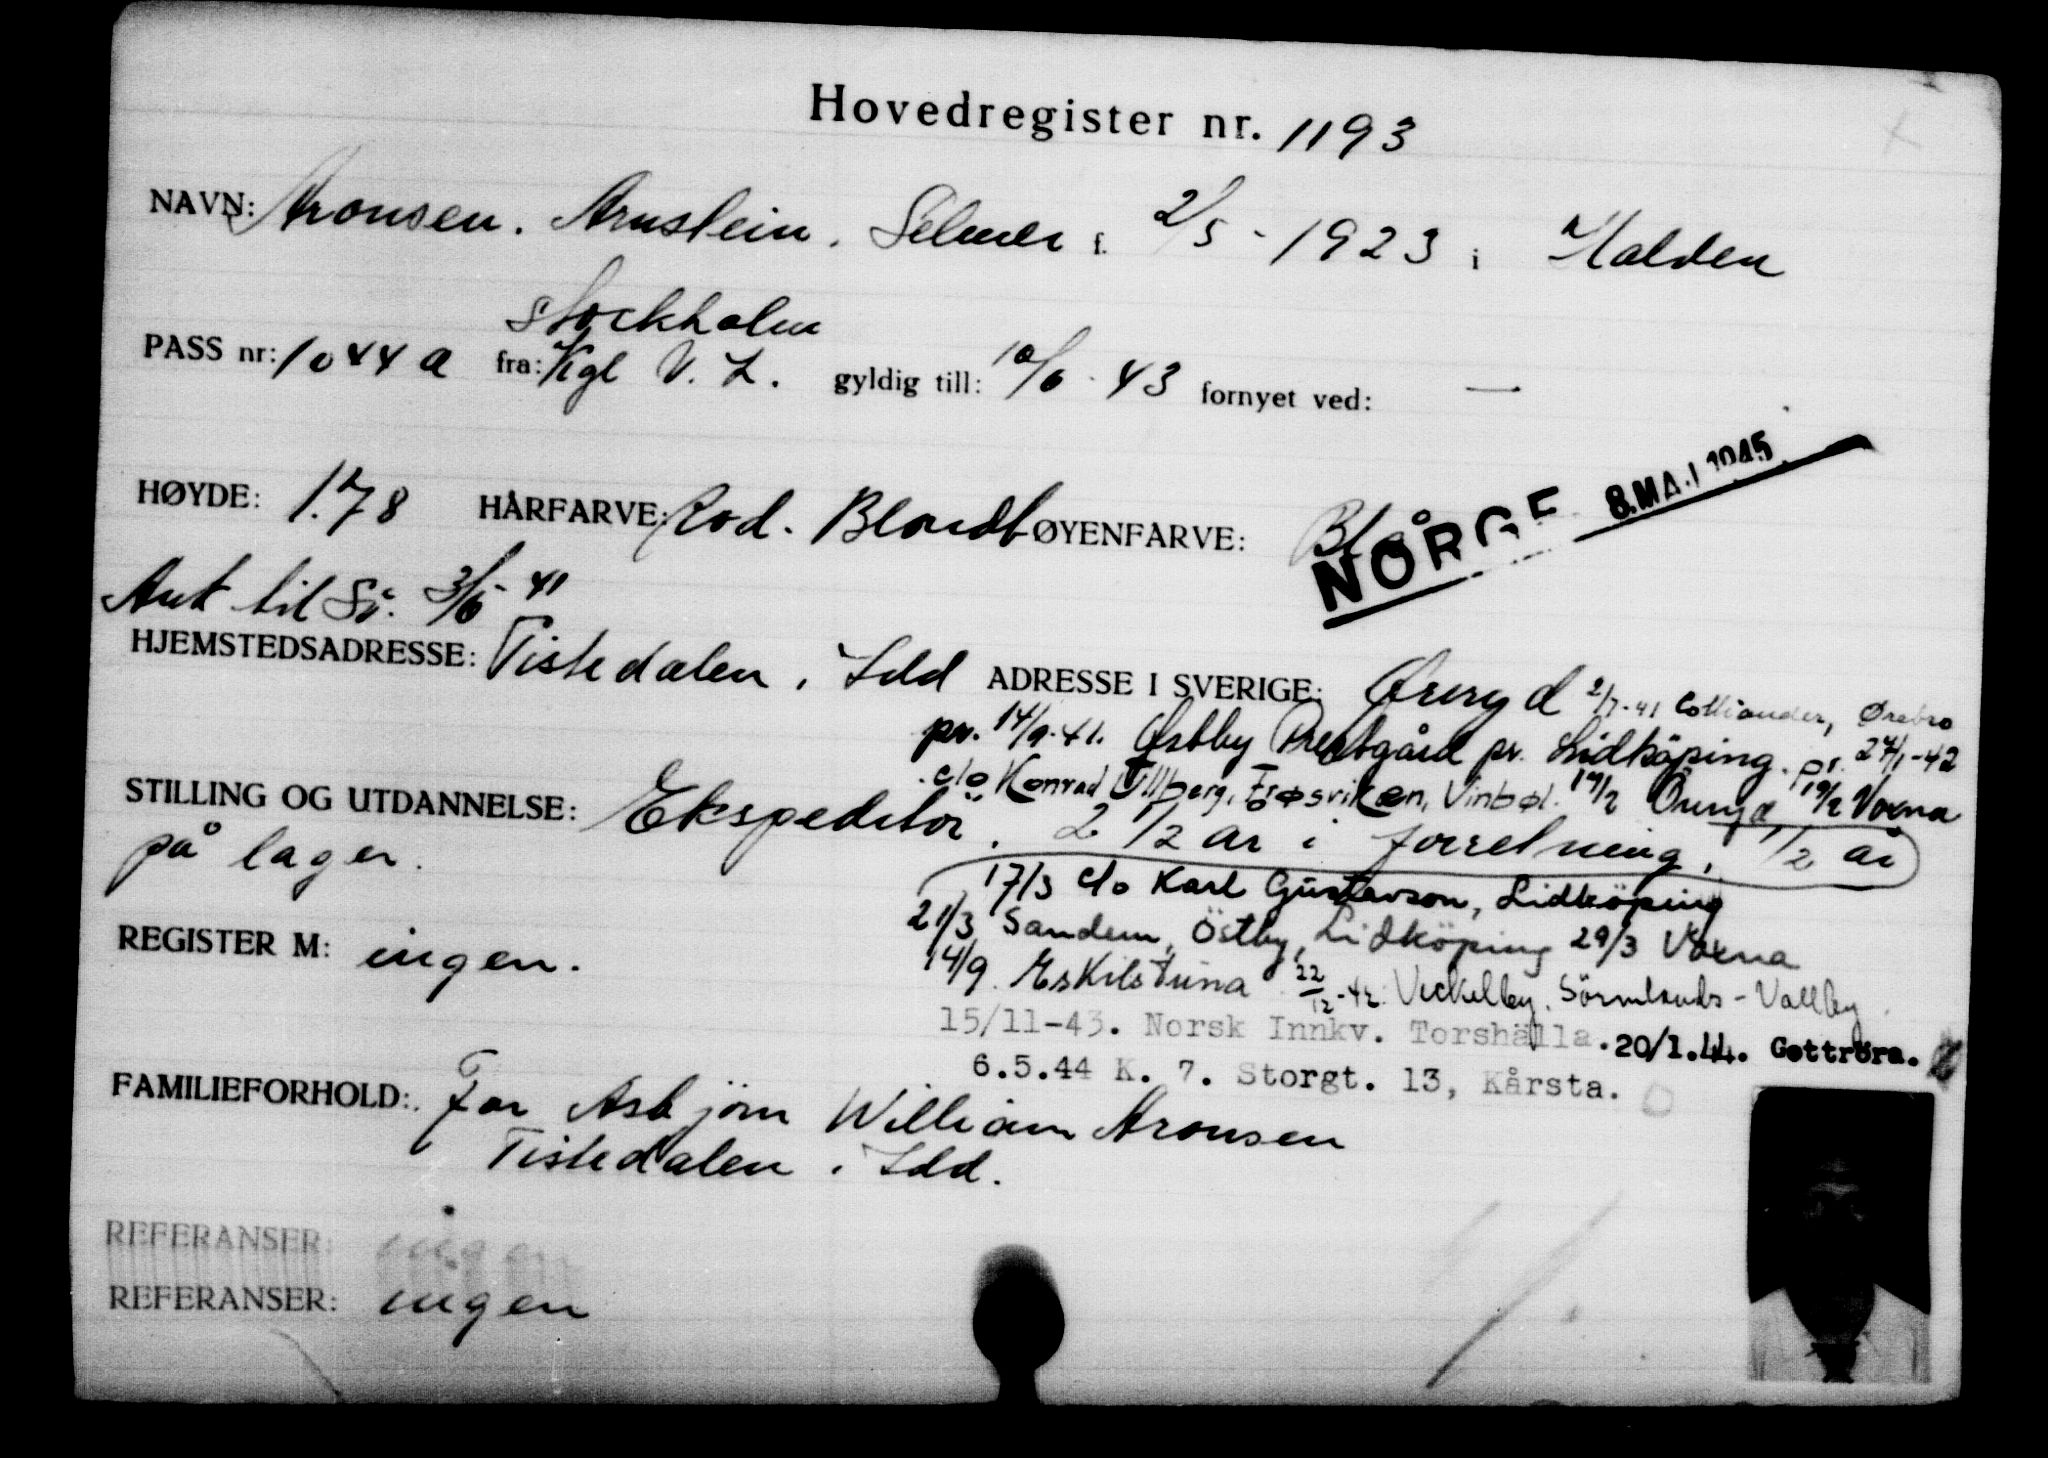 Hovedregister nr. 1193
NAVN: Aronsen. Arnstein. Selmer f. 2/5 - 1923 i Halden
Stockholm
PASS nr: 1044 a fra: Kgl V. L. gyldig till: 10/6 - 43 fornyet ved: —
HØYDE: 1.78 HÅRFARVE: Rød. Blondt ØYENFARVE: Blå
NORGE 8. MAI 1945
Ank til Sv. 3/6 - 41
HJEMSTEDSADRESSE: Tistedalen i Idd ADRESSE I SVERIGE: Øreryd 2/7-41 Colliander, Ørebro
pr. 14/9-41. Østby Prestgård pr. Lidköping. pr. 24/1-42
c/o Konrad Ullberg, Frøsviken, Vinbøl. 14/2 Öreryd 19/2 Voxna
STILLING OG UTDANNELSE: Ekspeditör. 2 1/2 år i forretning, 1/2 år
på lager.
17/3 c/o Karl Gustavson, Lidköping
21/3 Sandem, Östby, Lidköping 29/3 Voxna
REGISTER M: ingen.
14/9 Eskilstuna 22/12-42 Veckelby. Sörmlands-Vallby
15/11-43. Norsk Innkv. Torshälla. 20/1.44. Gottröra.
6.5.44 K. 7. Storgt. 13, Kårsta.
FAMILIEFORHOLD: Far Asbjörn William Aronsen
Tistedalen i Idd.
REFERANSER: ingen
REFERANSER: ingen